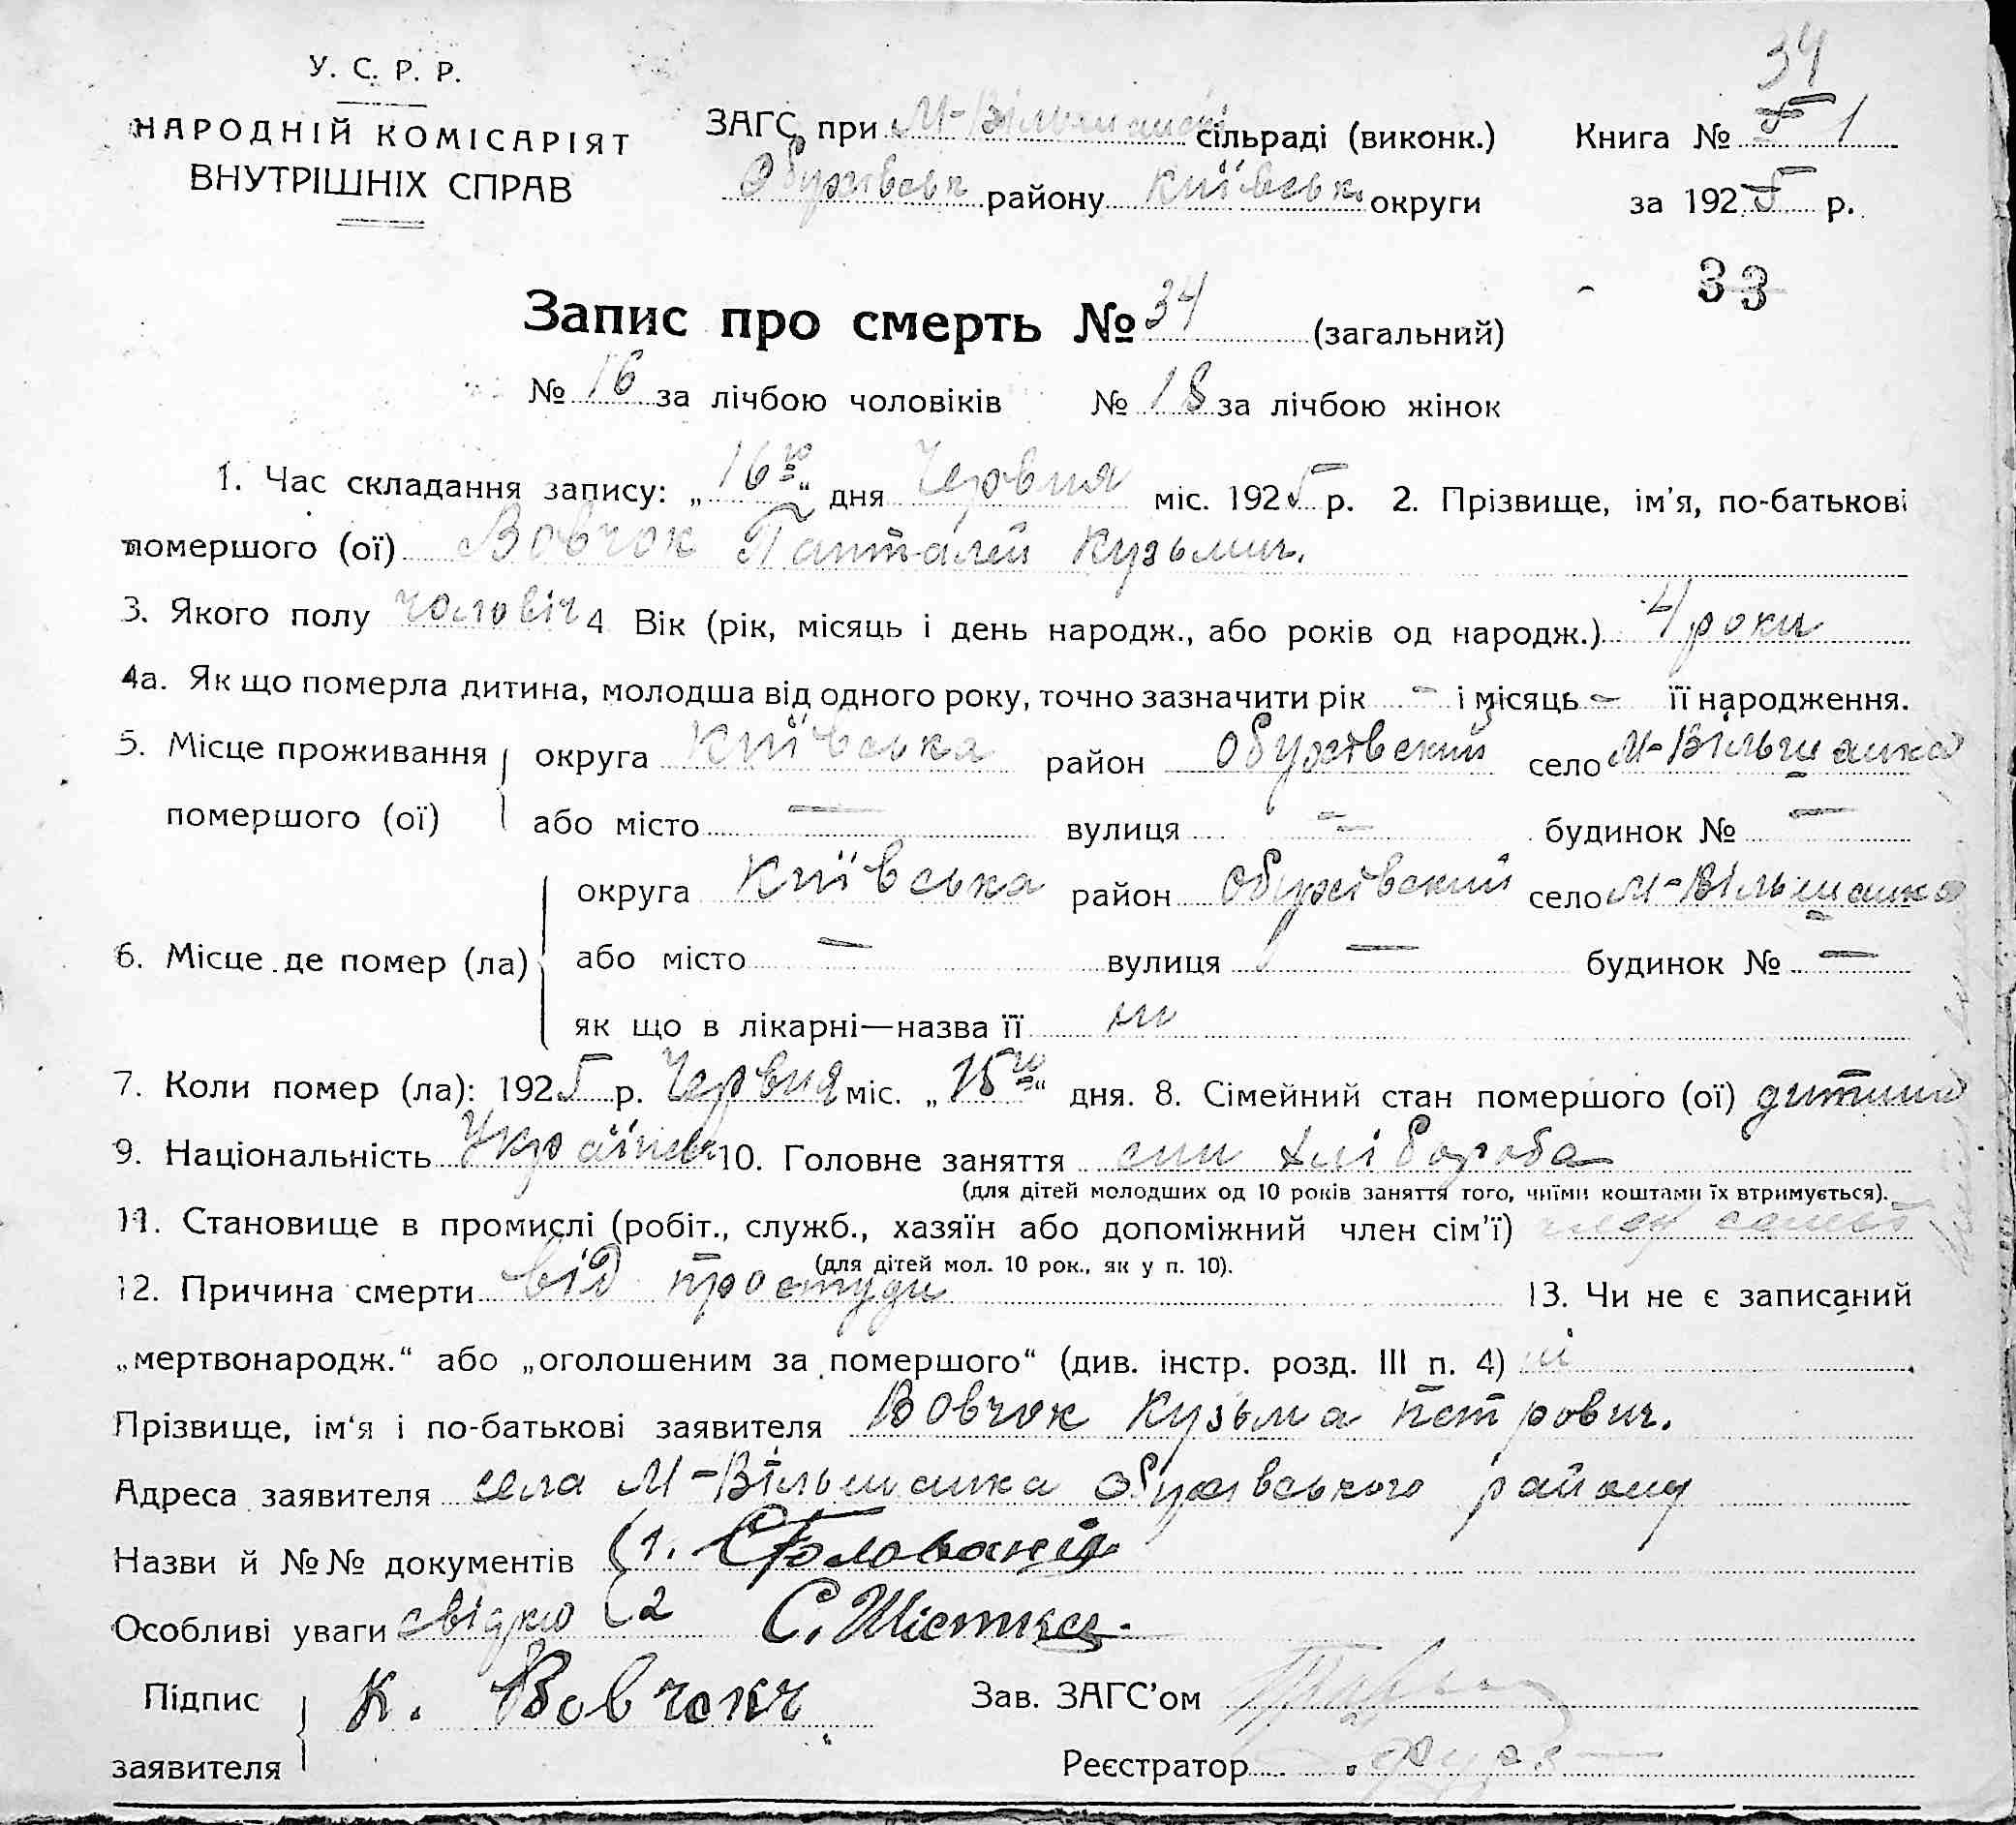 34
У. С. Р. Р.
НАРОДНІЙ КОМІСАРІЯТ
ВНУТРІШНІХ СПРАВ
ЗАГС при М-Вільшанськ сільраді (виконк.)
Обухівськ району Київськ. округи
Книга № 1
за 1925 р.
33
Запис про смерть № 34 (загальний)
№ 16 за лічбою чоловіків № 18 за лічбою жінок
1. Час складання запису: „16го“ дня Червня міс. 1925 р. 2. Прізвище, ім'я, по-батькові
помершого (ої) Вовчок Панталей Кузьмич.
3. Якого полу чоловіч 4 Вік (рік, місяць і день народж., або років од народж.) 4 роки
4а. Як що померла дитина, молодша від одного року, точно зазначити рік - і місяць - її народження.
5. Місце проживання округа Київська район Обухівский село М-Вільшанка
помершого (ої) або місто — вулиця — будинок № —
округа Київська район Обухівский село М-Вільшанка
6. Місце де помер (ла) або місто — вулиця — будинок № —
як що в лікарні—назва її ні
7. Коли помер (ла): 1925 р. Червня міс. „15го“ дня. 8. Сімейний стан помершого (ої) дитина
9. Національність Українец 10. Головне заняття син хлібороба
(для дітей молодших од 10 років заняття того, чиїми коштами їх втримується).
11. Становище в промислі (робіт., служб., хазяїн або допоміжний член сім'ї) член
(для дітей мол. 10 рок., як у п. 10).
12. Причина смерти від простуди 13. Чи не є записаний
„мертвонародж.“ або „оголошеним за помершого“ (див. інстр. розд. III п. 4) ні
Прізвище, ім'я і по-батькові заявителя Вовчок Кузьма Петрович.
Адреса заявителя села М-Вільшанка Обухівського району
Назви й №№ документів 1.
Особливі уваги свідки 2 С. Шістка
Підпис К. Вовчок Зав. ЗАГС'ом
заявителя Реєстратор